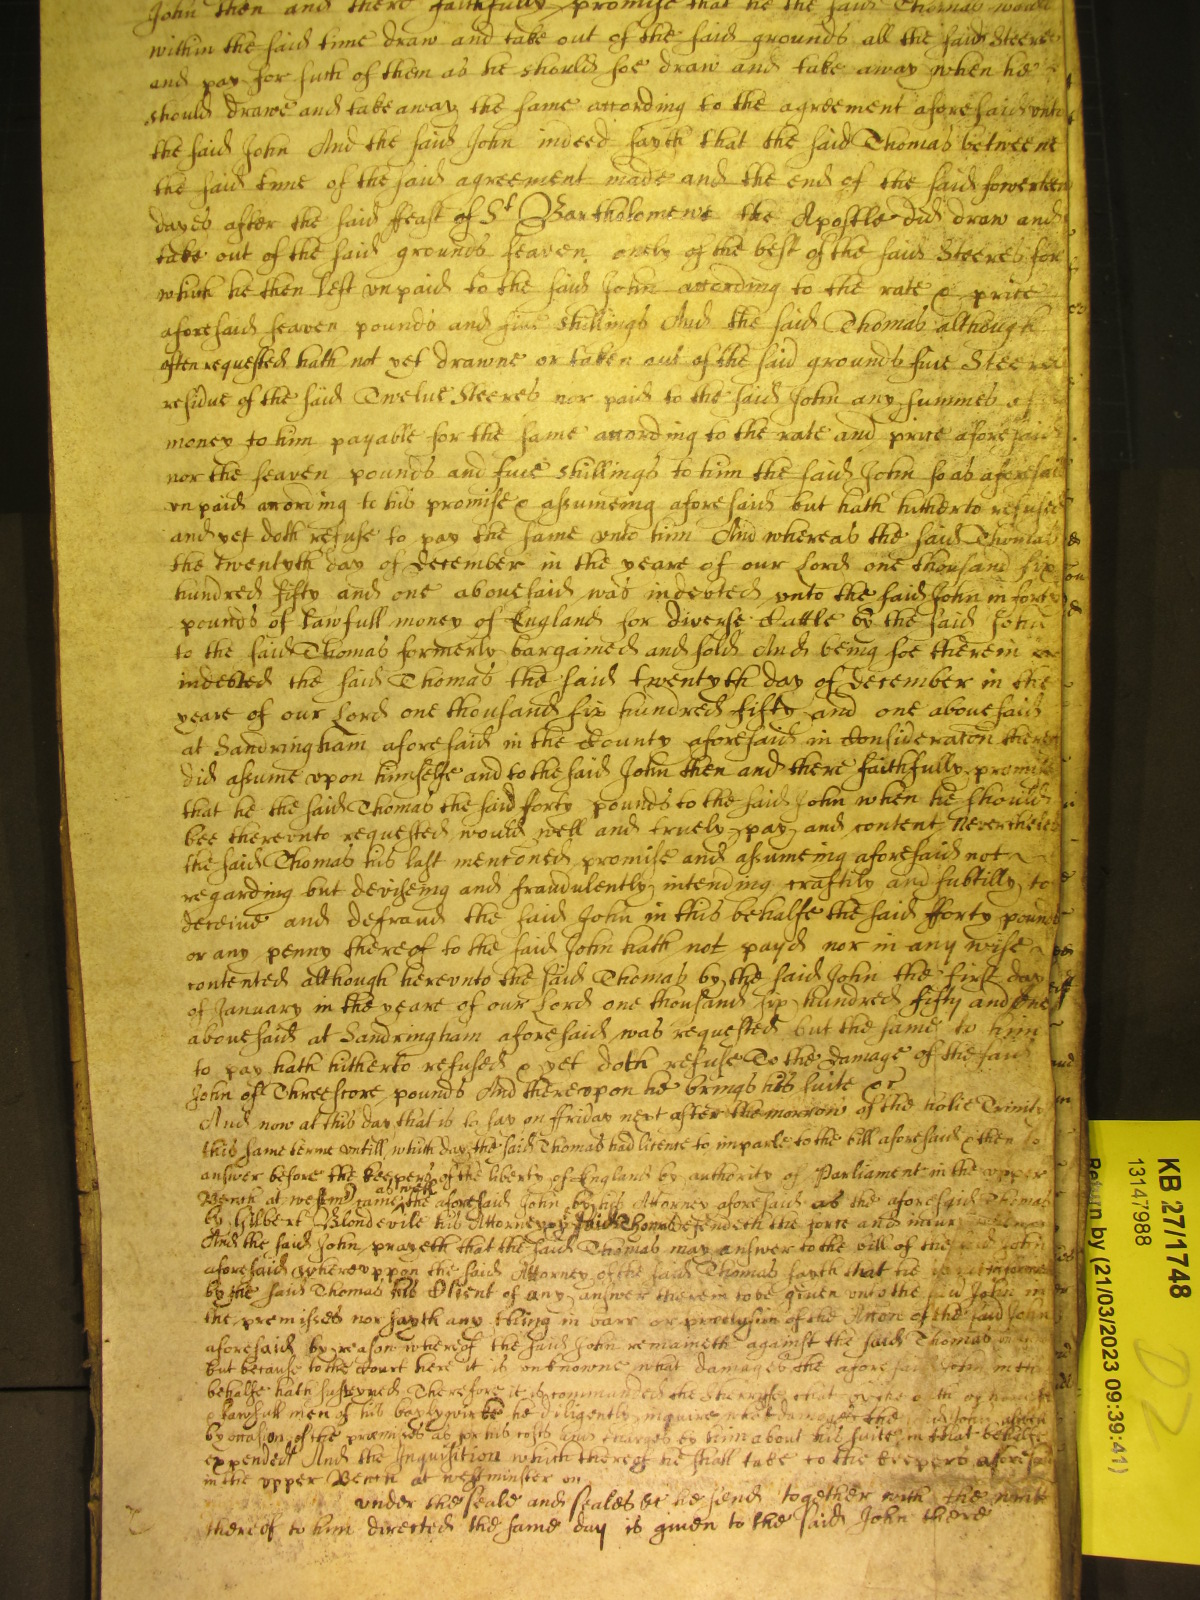 John then and there faithfully promise that he the said Thomas would
within the said time draw and take out of the said grounds all the said Steeres
and pay for such of them as he should soe draw and take away when he
should drawe and take away the same according to the agreement aforesaid unto
the said John And the said John indeed sayth that the said Thomas betweene
the said time of the said agreement made and the end of the said fowerteen
dayes after the said ffeast of St Bartholomewe the Apostle did draw and
take out of the said grounds seaven onely of the best of the said Steeres for
which he then left vnpaid to the said John according to the rate & price
aforesaid seaven pounds and five shillings And the said Thomas although
often requested hath not yet drawne or taken out of the said grounds five Steeres
residue of the said Twelve Steeres nor paid to the said John any summes of
money to him payable for the same according to the rate and price aforesaid
nor the seaven pounds and five shillings to him the said John so as aforesaid
vnpaid according to his promise & assumeing aforesaid but hath hitherto refused
and yet doth refuse to pay the same vnto him And whereas the said Thomas
the twentyth day of December in the yeare of our Lord one thousand six
hundred fifty and one abovesaid was indevted vnto the said John in forty
pounds of lawfull money of England for diverse Cattle by the said John
to the said Thomas formerly bargained and sold And being soe therein
indebted the said Thomas the said twentyth day of December in the
yeare of our Lord one thousand six hundred fifty and one abovesaid
at Sandringham aforesaid in the County aforesaid in Consideracon thereof
did assume vpon himselfe and to the said John then and there faithfully promise
that he the said Thomas the said forty pounds to the said John when he should
bee therevnto requested would well and truely pay and content Neverthelesse
the said Thomas his last mentoned promise and assumeing aforesaid not
regarding but deviseing and fraudulently intending craftily and subtilly to
deceive and defraud the said John in this behalfe the said fforty pounds
or any penny thereof to the said John hath not payd nor in any wise
contented although herevnto the said Thomas by the said John the first day
of January in the yeare of our Lord one thousand six hundred fifty and one
abovesaid at Sandringham aforesaid was requested but the same to him
to pay hath hitherto refused & yet doth refuse To the damage of the said
John of Threescore pounds And therevpon he brings his suite &c
And now at this day that is to say on ffriday next after the morrow of the holie Trinity
this same terme vntill which day the said Thomas had licence to imparle to the bill aforesaid & then to
answer before the keepers of the liberty of England by authority of Parliament in the vpper
Bench at westm came as well the aforesaid John by his Attorney aforesaid as the aforesaid Thomas
by Gilbert Blondevile his Attorney & said Thomas defendeth the force and iniury
And the said John prayeth that the said Thomas may answer to the bill of the said John
aforesaid wherevppon the said Attorney of the said Thomas sayth that he is not informed
by the said Thomas his Client of any answer therein to be given vnto the said John in
the premisses nor sayth any thing in barr or preclusion of the Accon of the said John
aforesaid by reason whereof the said John remaineth against the said Thomas
but because to the Court here it is vnknowne what damages the aforesaid John in this
behalfe hath susteyned Therefore it is commanded the Sherriffe that by the oath of honest
& lawfull men of his baylywicke he diligently inquire what damages the said John
by occasion of the premisses as for his costs and charges by him about his suite in that behalfe
expended And the Inquisition which thereof he shall take to the keepers aforesaid
in the vpper Bench at westminster on
vnder the seale and seales &c he send together with the writt
thereof to him directed the same day is given to the said John there
KB 27/1748
13147988
Return by (21/03/2023 09:39:41)
D2